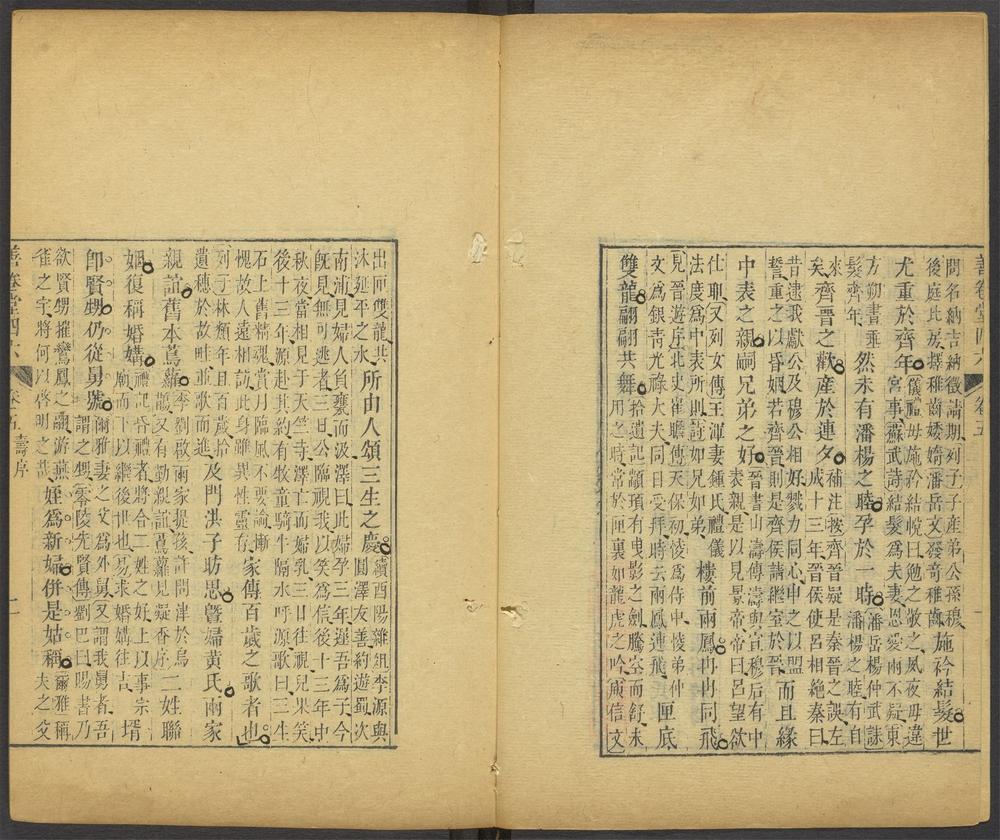 善卷堂四六 卷五 一
問名納吉納徵請期列子子產弟公孫穆
後庭比房擇稚齒婑媠潘岳文發奇稚齒
施衿結髮世
尤重於齊年
儀禮母施衿結帨曰勉之敬之夙夜毋違
宮事蘇武詩結髮為夫妻恩愛兩不疑東
方朔書乖
髮齊年
然未有潘楊之睦孕於一時
潘岳楊仲武誄
潘楊之睦有自
來
矣
齊晉之歡產於連夕
補注按齊晉疑是秦晉之誤左
成十三年晉侯使呂相絕秦曰
昔逮我獻公及穆公相好戮力同心申之以盟
誓重之以昏姻若齊晉則是齊侯請繼室於晉
而且緣
中表之親嗣兄弟之好
晉書山濤傳濤與宣穆后有中
表親是以見景帝帝曰呂望欲
仕耶又列女傳王渾妻鍾氏禮儀
法度為中表所則詩如兄如弟
樓前兩鳳冉冉同飛
見晉遊序北史崔瞻傳天保初㥄為侍中㥄弟仲
文為銀青光祿大夫同日受拜時云兩鳳連飛
匣底
雙龍翩翩共舞
拾遺記顓頊有曳影之劍騰空而舒未
用之時常於匣裏如龍虎之吟庾信文
出匣雙龍共
沐延平之水
所由人頌三生之慶
續酉陽雜俎李源與
圓澤友善約遊蜀次
南浦見婦人負甕而汲澤曰此婦孕三年遲吾為子今
既見無可逃者三日公臨視我以笑為信後十三年中
秋夜當相見于天竺寺澤亡而婦乳三日往視兒果笑
後十三年源赴其約有牧童騎牛隔水呼源歌曰三生
石上舊精魂賞月臨風不要論慚
愧故人遠相訪此身雖異性靈存
家傳百歲之歌者也
列子林類年且百歲拾
遺穗於故畦並歌而進
及門洪子昉思暨婦黃氏兩家
親誼舊本蔦蘿
李劉啟兩家提孩許問津於烏
鵲又有勤親誼蔦蘿見疑香序
二姓聯
姻復稱婚媾
禮記昏禮者將合二姓之好上以事宗
廟而下以繼後世也易求婚媾往吉
壻
即賢甥仍從舅號
爾雅妻之父為外舅又謂我舅者吾
謂之甥零陵先賢傳劉巴曰賜書乃
欲賢甥摧鸞鳳之翮游燕
雀之宇將何以啓明之哉
姪為新婦併是姑稱
爾雅稱
夫之父
善卷堂四六 卷五 壽序 二